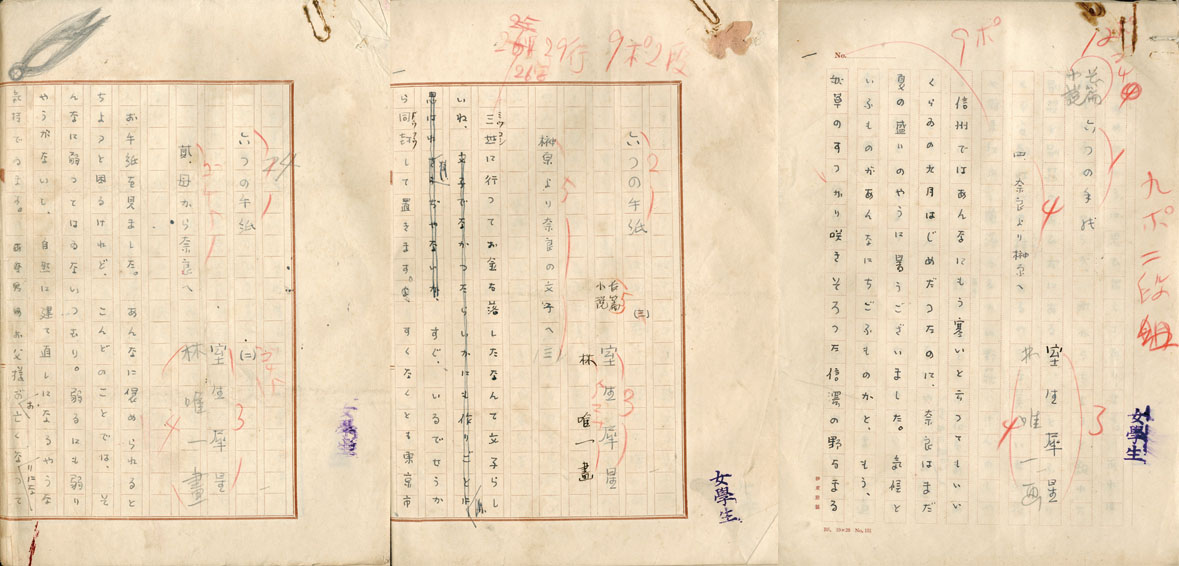 24
六つの手紙
(二)
室生犀星
3
林唯一畫
4
母から奈良へ
お手紙を見ました。あんなに褒められると
ちよつと困るけれど、こんどのことでは、そ
んなに弱つてはゐないつもり。弱るにも弱り
やうがないし、自然に建て直しになるやうな
お父様が亡くなつて
29行 9ポ2段
六つの手紙
2
長篇小説
5
(三)
室生犀星
3
林唯一畫
榊原より奈良の文子へ 三
5
三越に行つてお金を落したなんて文子らし
ミツコシ
いね、文子でなかつたらいかにも作りごとに
すぐ、いるでせうか
ら同封して置きます。すくなくとも東京市
女學生
九ポ二段組
9ポ
12
No.
長篇小説
六つの手紙
1
室生犀星
3
林唯一画
4
四、奈良より榊原へ
4
信州ではあんなにもう寒いと云つてもいい
くらゐの九月はじめだつたのに、奈良はまだ
夏の盛いのやうに暑うございました。気候と
いふものがあんなにちごふものかと、もう、
秋草のすつかり咲きそろつた信濃の野をまる
女學生